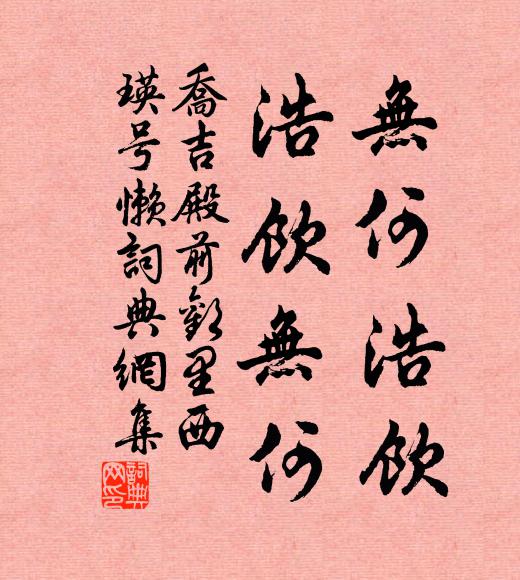 無何浩飲
浩飲無何
喬吉殿前歡里西
瑛号懶詞典網集
詞典
网印